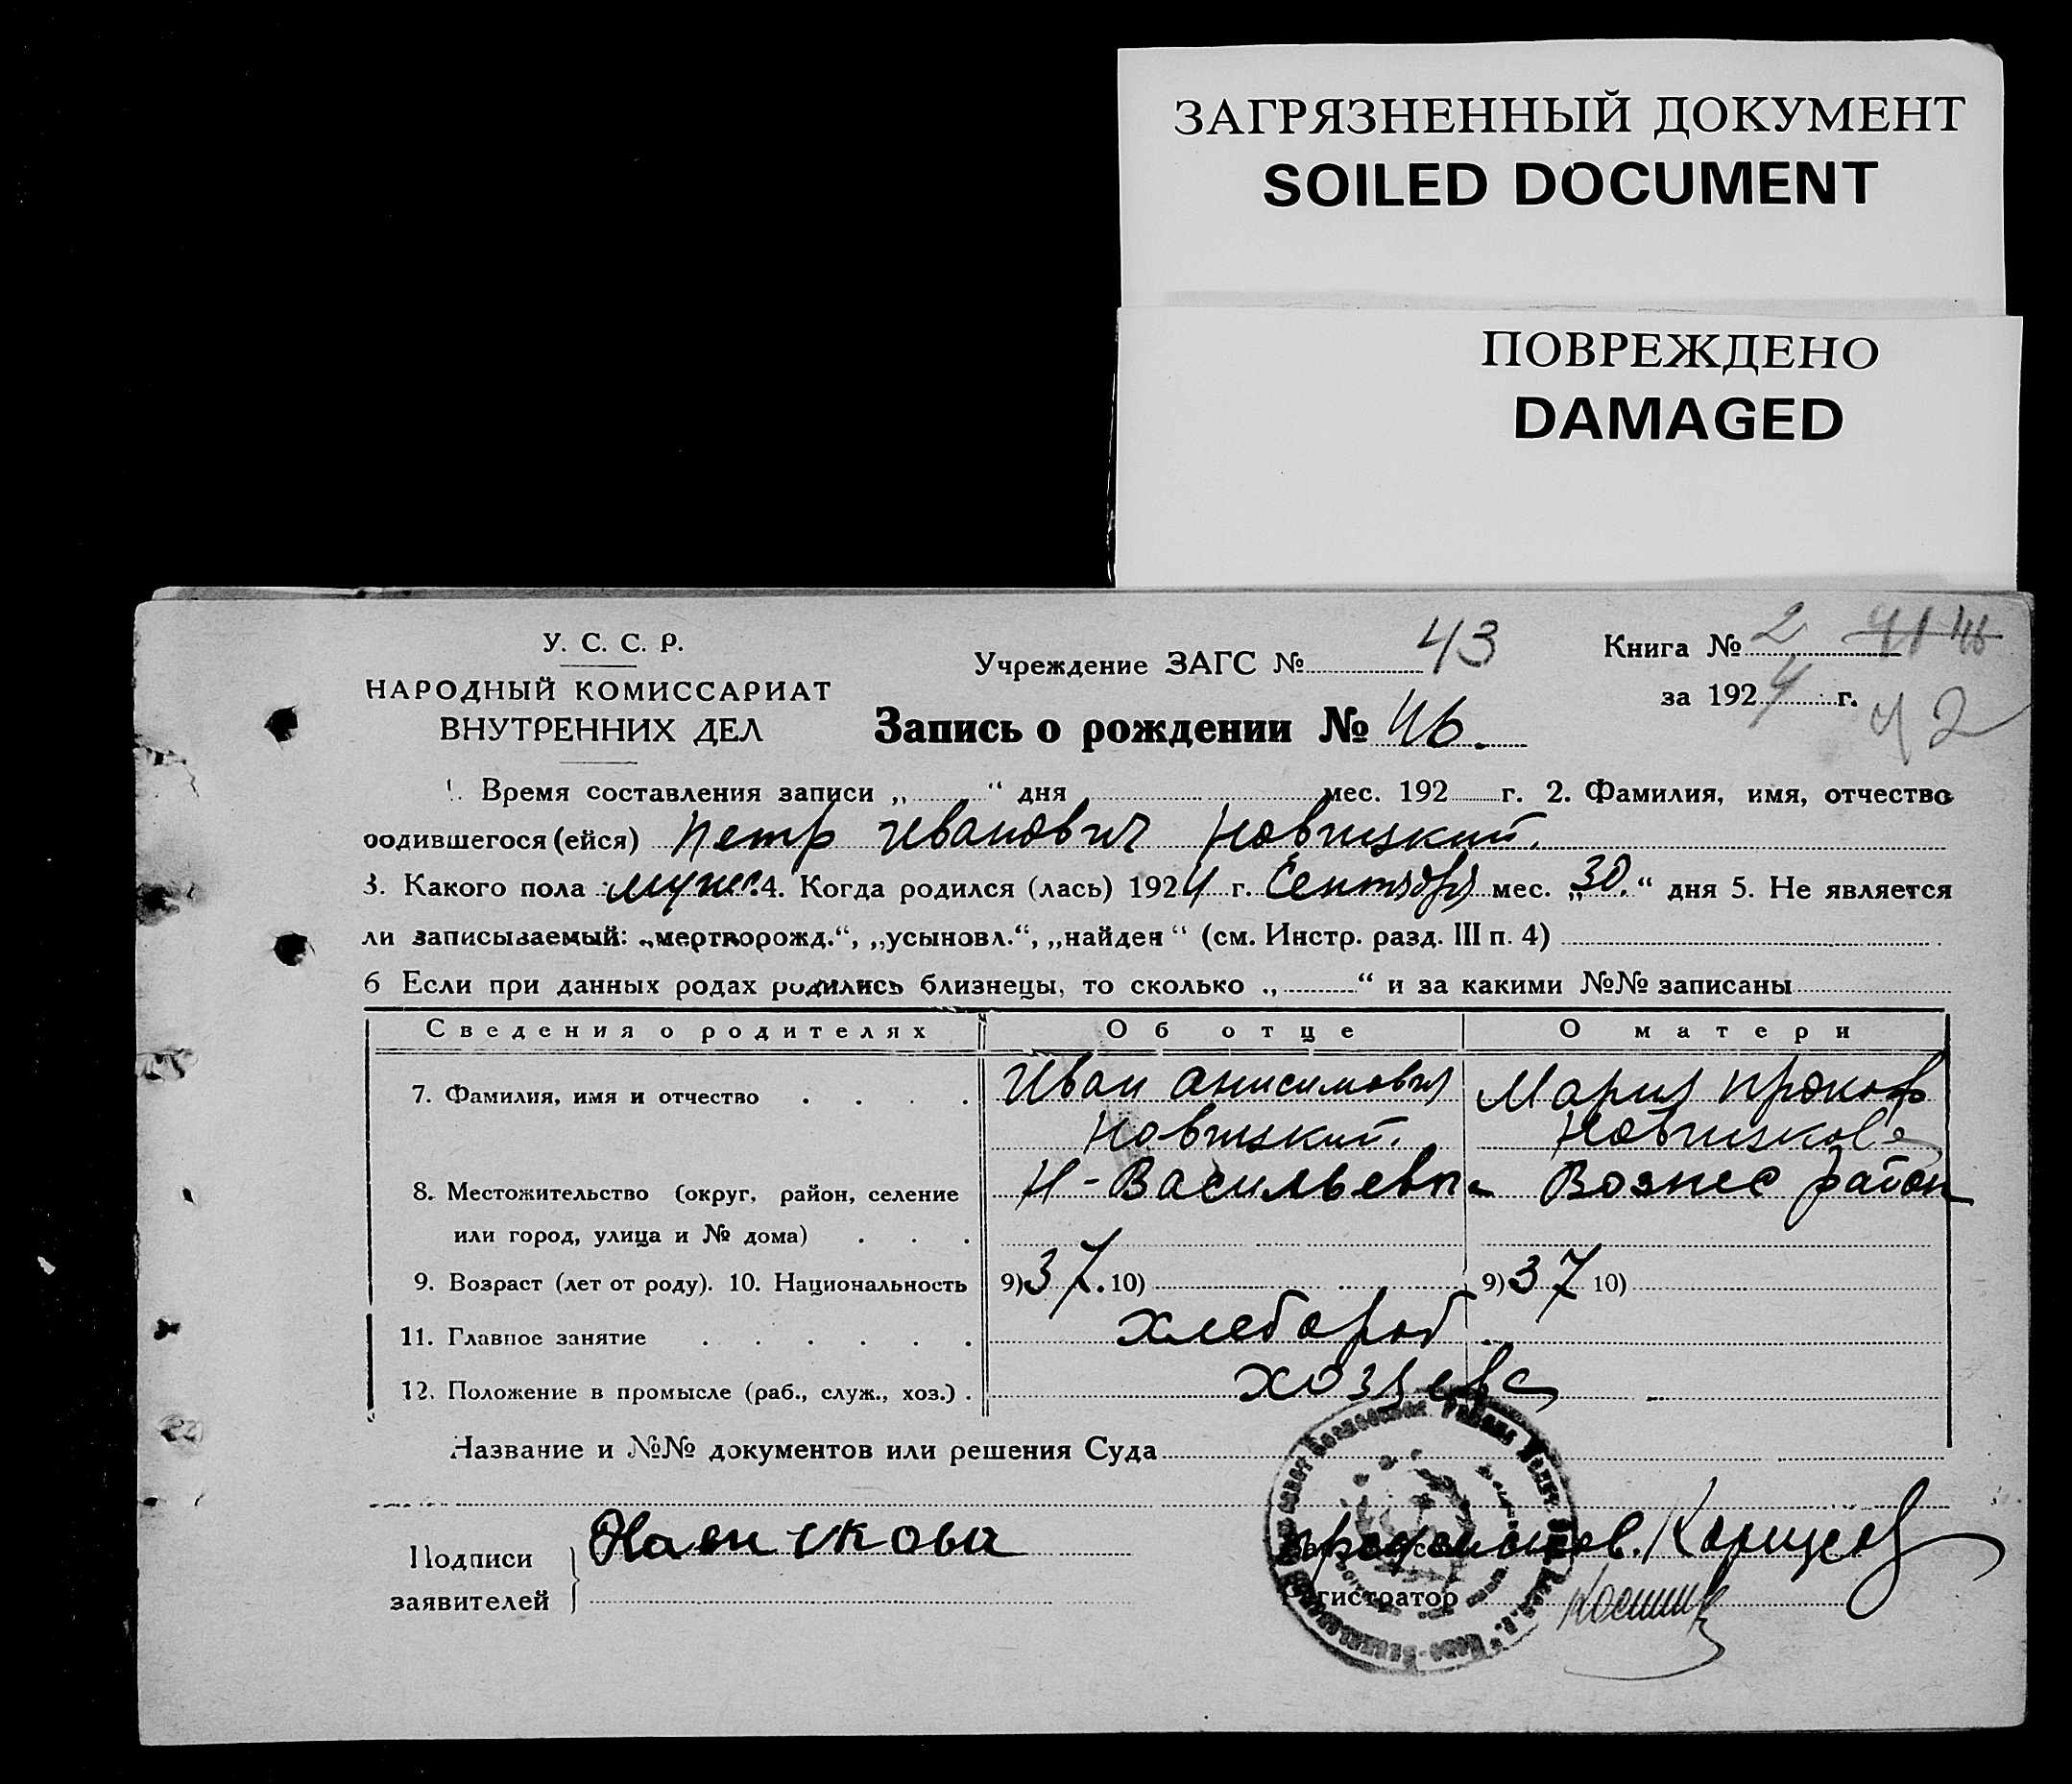 ЗАГРЯЗНЕННЫЙ ДОКУМЕНТ
SOILED DOCUMENT
ПОВРЕЖДЕНО
DAMAGED
У. С. С. Р.
НАРОДНЫЙ КОМИССАРИАТ
ВНУТРЕННИХ ДЕЛ
Учреждение ЗАГС № 43
Книга № 2 41 46
за 1924 г.
42
Запись о рождении № 46.
1. Время составления записи „ “ дня мес. 192 г. 2. Фамилия, имя, отчество
родившегося (ейся) Петр Иванович Новицкий.
3. Какого пола муж. 4. Когда родился (лась) 1924 г. Сентября мес. „30.“ дня 5. Не является
ли записываемый: „мертворожд.“, „усыновл.“, „найден“ (см. Инстр. разд. III п. 4)
6 Если при данных родах родились близнецы, то сколько „ “ и за какими №№ записаны
Сведения о родителях Об отце О матери
7. Фамилия, имя и отчество Иван Анисимович Мария Прокоф
Новицкий.
8. Местожительство (округ, район, селение Н-Васильевка Вознес район
или город, улица и № дома)
9. Возраст (лет от роду). 10. Национальность 9) 37. 10) 9) 37 10)
11. Главное занятие хлебороб
12. Положение в промысле (раб., служ., хоз.) хозяева
Название и №№ документов или решения Суда
Подписи
заявителей
Регистратор